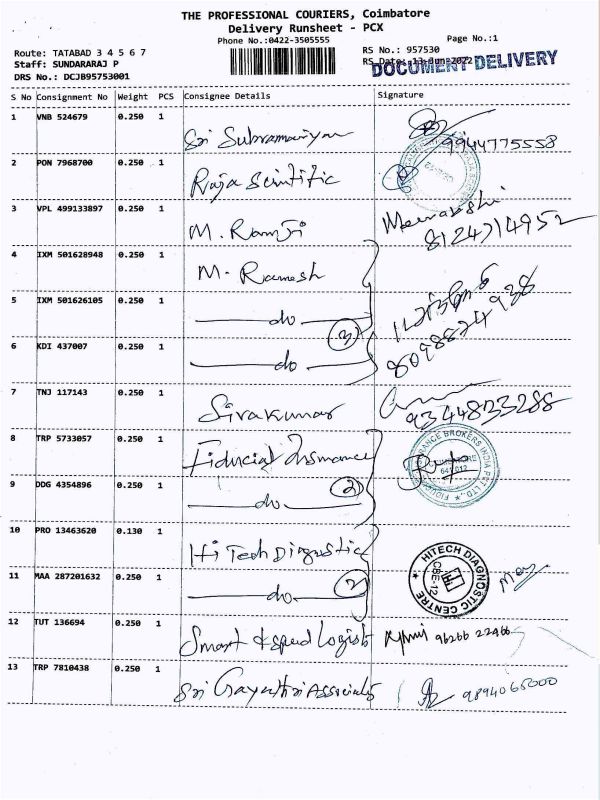 THE PROFESSIONAL COURIERS, Coimbatore
Delivery Runsheet - PCX
Phone No.:0422-3505555
Page No.:1
Route: TATABAD 3 4 5 6 7
RS No.: 957530
Staff: SUNDARARAJ P
RS Date: 13-Jun-2022
DOCUMENT DELIVERY
DRS No.: DCJB95753001
S No Consignment No Weight PCS Consignee Details Signature
1 VNB 524679 0.250 1 Sri Subramaniyan 9944775558
2 PON 7968700 0.250 1 Raja Scintific
3 VPL 499133897 0.250 1 M. Ramji Meenakshi
8124714952
4 IXM 501628948 0.250 1 M. Ramesh
5 IXM 501626105 0.250 1 do 3
8098824938
6 KDI 437007 0.250 1 do
7 TNJ 117143 0.250 1 Sivakumar 9344833288
8 TRP 5733057 0.250 1 Fiducial Insmance
9 DDG 4354896 0.250 1 do 2
10 PRO 13463620 0.130 1 Hi Tech Diagnostic
HITECH DIAGNOSTIC CENTRE
CBE-12
11 MAA 287201632 0.250 1 do 2
12 TUT 136694 0.250 1 Smart & speed Logist 96266 22466
13 TRP 7810438 0.250 1 Sri Gayathri Associats 9894065000